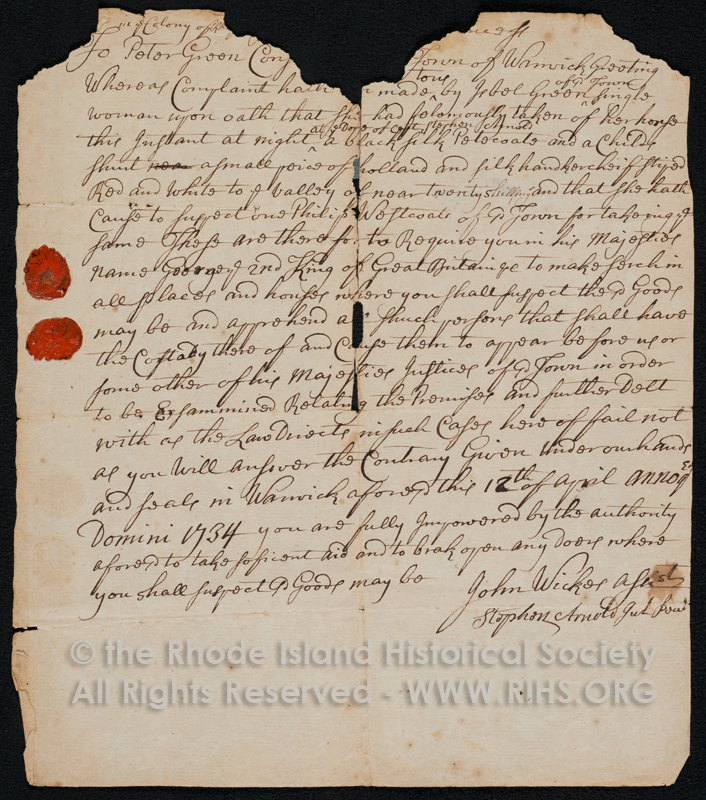 Colony of
To Peter Green Con Town of Warwick Greeting
Whereas Complaint hath made by Isbel Green of sd Town single
woman upon oath that she had felomously taken of her house
this Instant at night at ye Dore of Capt Stephen Arnold a black silk Petecoate and a Childs
shunt a small peice of holland and silk handkercheif striped
Red and white to ye valley of near twenty shilling and that she hath
Cause to suspect one Philip Westcoate of sd Town for takeing ye
same These are there for to Require you in his Majesties
name George ye 2nd King of Great Britain &c to make serch in
all places and houses where you shall suspect the sd Goods
may be and apprehend all shuch persons that shall have
the Costady there of and Cause them to appear before us or
some other of his Majesties Justices of sd Town in order
to be Exsammined Relating the Premises and further Delt
with as the Law Directs in such Cases here of fail not
as you Will answer the Contrary Given under our hands
and seals in Warwick aforesd this 12th of april annoq
Domini 1734 you are fully Impowered by the authority
aforesd to take soficent aid and to brak open any doers where
you shall suspect sd Goods may be
John Wickes assist
Stephen Arnold Jut
© the Rhode Island Historical Society
All Rights Reserved - WWW.RIHS.ORG